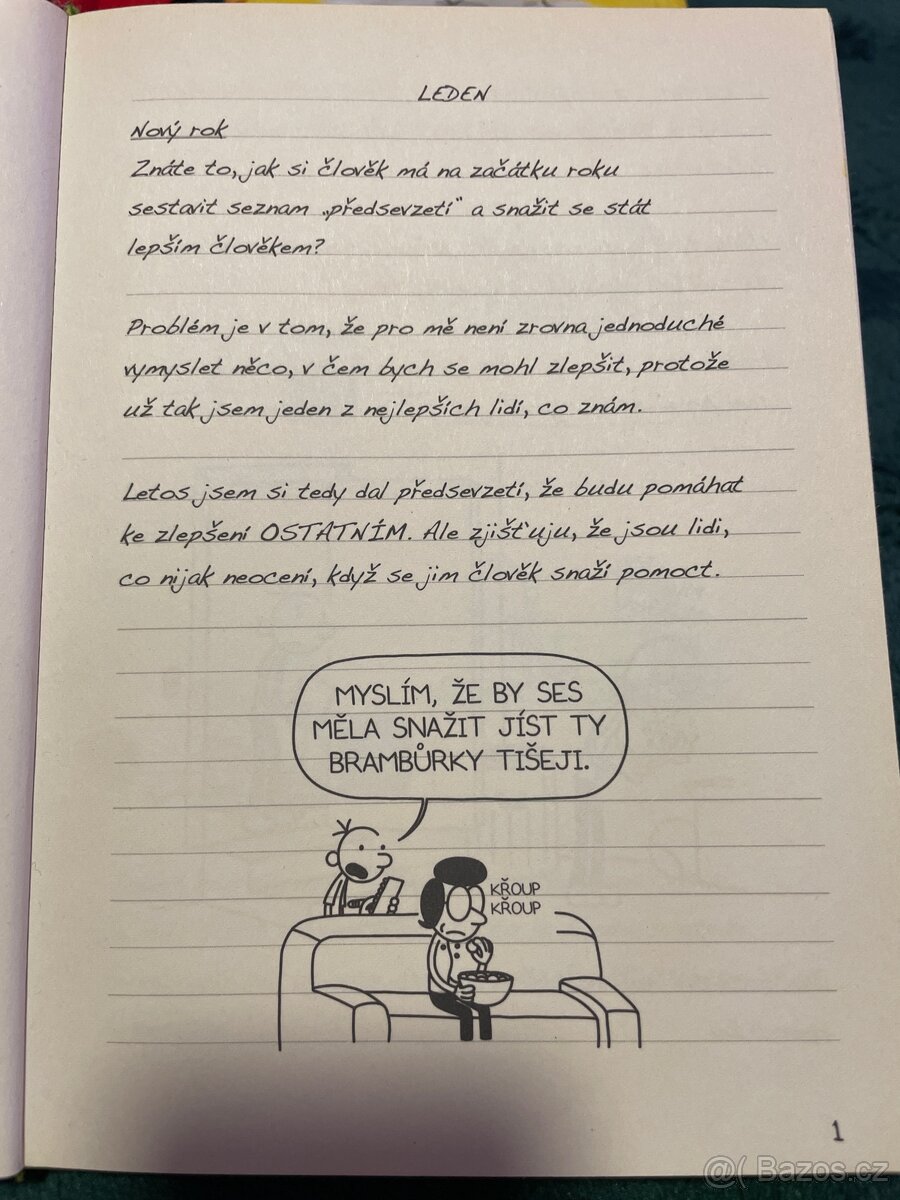 LEDEN
Nový rok
Znáte to, jak si člověk má na začátku roku
sestavit seznam „předsevzetí“ a snažit se stát
lepším člověkem?
Problém je v tom, že pro mě není zrovna jednoduché
vymyslet něco, v čem bych se mohl zlepšit, protože
už tak jsem jeden z nejlepších lidí, co znám.
Letos jsem si tedy dal předsevzetí, že budu pomáhat
ke zlepšení OSTATNÍM. Ale zjišťuju, že jsou lidi,
co nijak neocení, když se jim člověk snaží pomoct.
MYSLÍM, ŽE BY SES
MĚLA SNAŽIT JÍST TY
BRAMBŮRKY TIŠEJI.
KŘOUP
KŘOUP
1
@( Bazos.cz